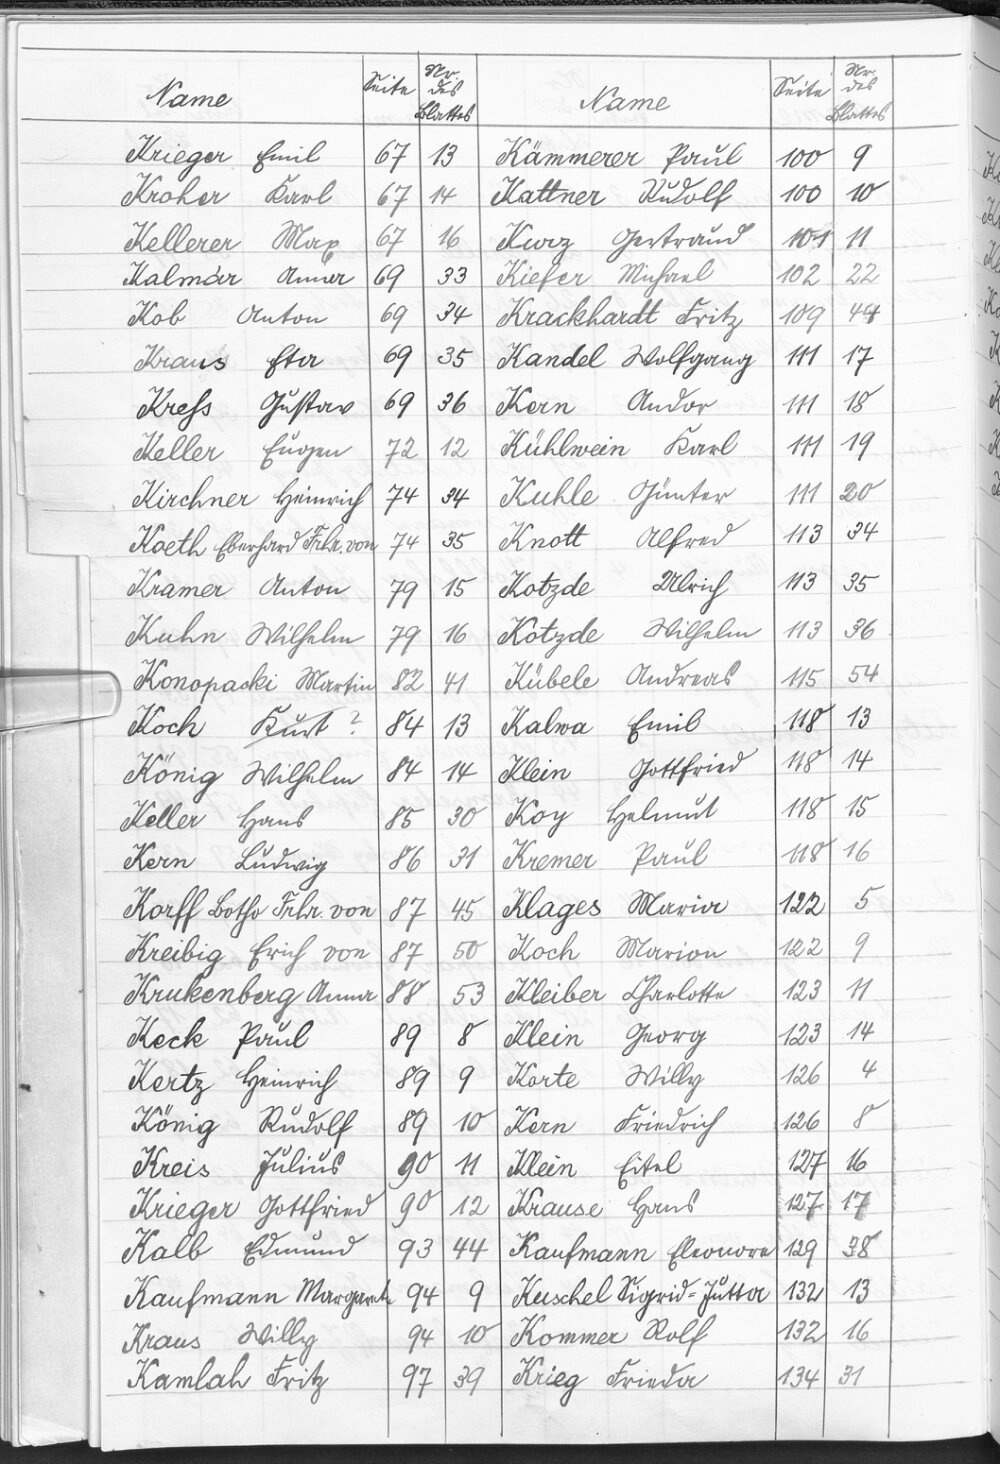 Name Seite Nr. des Blattes Name Seite Nr. des Blattes
Krieger Emil 67 13 Kämmerer Paul 100 9
Kroher Karl 67 14 Kattner Rudolf 100 10
Kellerer Max 67 16 Kurz Gertraud 101 11
Kalmár Anna 69 33 Kiefer Michael 102 22
Kob Anton 69 34 Krackhardt Fritz 109 44
Kraus Eta 69 35 Kandel Wolfgang 111 17
Kreß Gustav 69 36 Kern Andor 111 18
Keller Eugen 72 12 Kühlwein Karl 111 19
Kirchner Heinrich 74 34 Kuhle Günter 111 20
Koeth Eberhard Frhr. von 74 35 Knott Alfred 113 34
Kramer Anton 79 15 Kotzde Ulrich 113 35
Kuhn Wilhelm 79 16 Kotzde Wilhelm 113 36
Konopacki Martin 82 41 Kübele Andreas 115 54
Koch Kurt ? 84 13 Kalwa Emil 118 13
König Wilhelm 84 14 Klein Gottfried 118 14
Keller Hans 85 30 Koy Helmut 118 15
Kern Ludwig 86 31 Kremer Paul 118 16
Korff Botho Frhr. von 87 45 Klages Maria 122 5
Kreibig Erich von 87 50 Koch Marion 122 9
Krukenberg Anna 88 53 Kleiber Charlotte 123 11
Keck Paul 89 8 Klein Georg 123 14
Kertz Heinrich 89 9 Korte Willy 126 4
König Rudolf 89 10 Kern Friedrich 126 8
Kreis Julius 90 11 Klein Eitel 127 16
Krieger Gottfried 90 12 Krause Hans 127 17
Kalb Edmund 93 44 Kaufmann Eleonore 129 38
Kaufmann Margarete 94 9 Kuschel Sigrid-Jutta 132 13
Kraus Willy 94 10 Kommer Rolf 132 16
Kamlah Fritz 97 39 Krieg Frieda 134 31